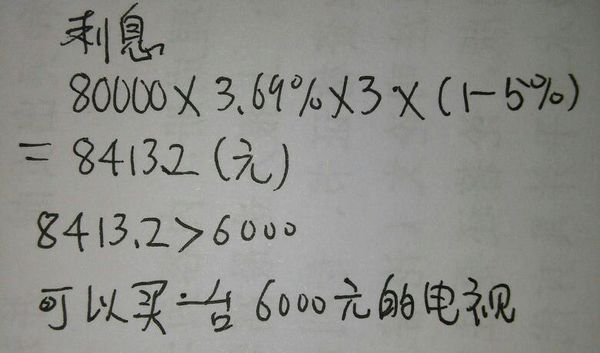 利息
80000×3.69%×3×(1-5%)
=8413.2(元)
8413.2>6000
可以买一台6000元的电视